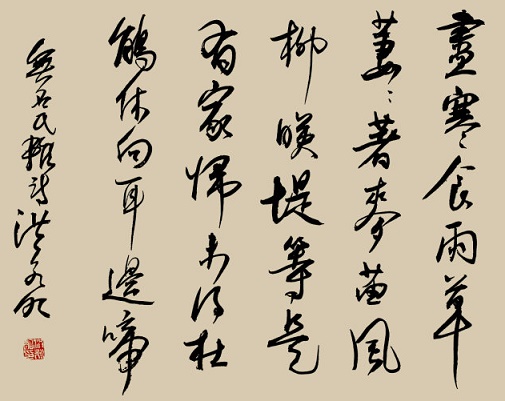 盡寒食雨草
萋〻著麥苗風
柳映堤等是
有家歸未得杜
鵑休向耳邊啼
無名氏雜詩 洪